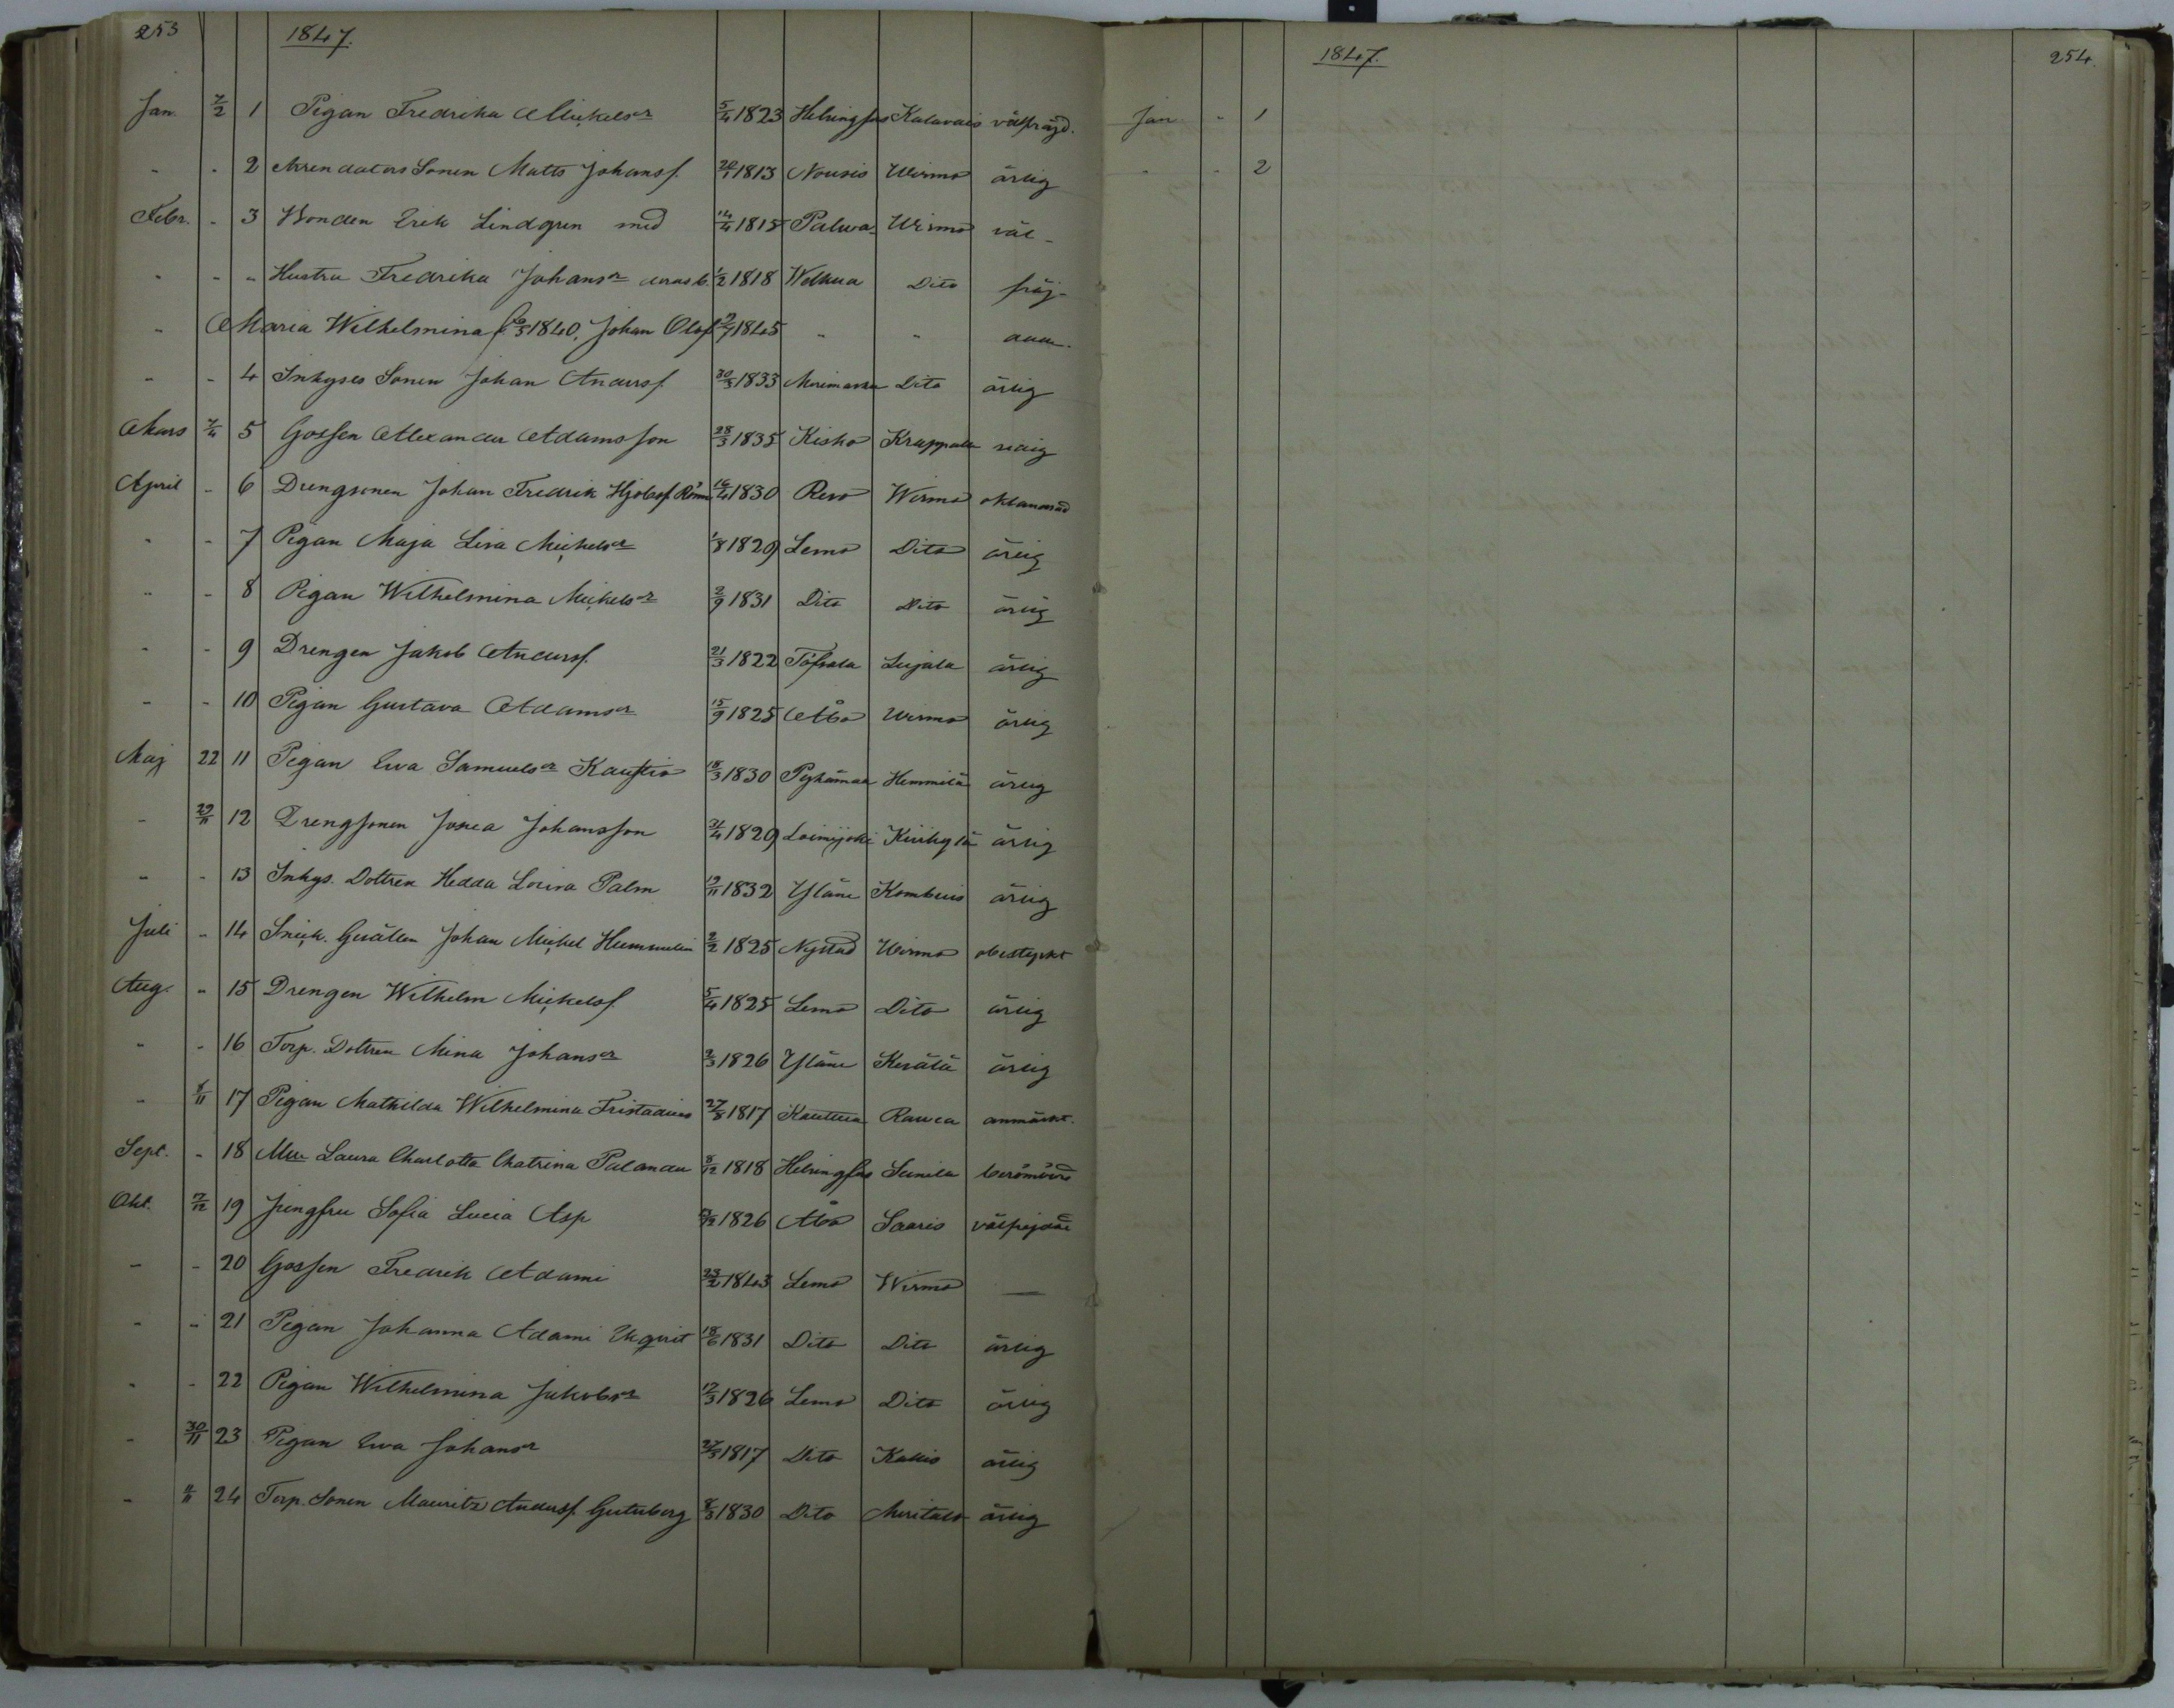 253 1847.
Jan. 7/2 1 Pigan Fredrika Mickelsr 5/4 1823 Helsingfors Kalavais välfräjd.
- - 2 Arrendators Sonen Matts Johansf. 20/1 1813 Nousis Wirmo ärlig
Febr. - 3 Bonden Erik Lindgren med 14/4 1815 Palva Wirmo väl-
- - - Hustru Fredrika Johansr samt b. 1/2 1818 Welkua Dito fräj-
- Maria Wilhelmina f. 1840, Johan Olof 1845 - -
- - 4 Inhyses Sonen Johan Andersf. 30/3 1833 Merimasku Dito ärlig
Mars 7/4 5 Gossen Alexander Adamsson 28/3 1835 Kisko redig
April - 6 Drengsonen Johan Fredrik 16/4 1830 Reso Wirmo oklandrad
- - 7 Pigan Maja Lisa Mickelsr 1/8 1829 Lemo Dito ärlig
- - 8 Pigan Wilhelmina Mickelsr 2/9 1831 Dito Dito ärlig
- - 9 Drengen Jakob Andersf. 21/3 1822 Töfsala ärlig
- - 10 Pigan Gustava Adamsr 15/9 1825 Åbo Wirmo ärlig
Maj 22 11 Pigan Ewa Samuelsr Kauftio 18/3 1830 Pyhämaa Hemmilä ärlig
- 29/11 12 Drengsonen Josua Johansson 1829 Loimijoki Kiukylä ärlig
- - 13 Inhys. Dottren Hedda Lovisa Palm 19/11 1832 Yläne ärlig
Juli - 14 Snick. Gesällen Johan Mickel Hummelin 2/2 1825 Nystad Wirmo obestyrkt
Aug. - 15 Drengen Wilhelm Mickelsf. 5/4 1825 Lemo Dito ärlig
- - 16 Torp. Dottren Mina Johansr 2/3 1826 Yläne Kerälä ärlig
- 8/11 17 Pigan Mathilda Wilhelmina 27/8 1817 Kauttua Rauca anmärkt.
Sept. - 18 Laura Charlotta Chatrina Palander 8/12 1818 Helsingfors Sunila berömvärd
Okt. 7/12 19 Jungfru Sofia Lucia Asp 1826 Åbo Saaris välfrejdad
- - 20 Gossen Fredrik Adami 23/2 1843 Lemo Wirmo —
- - 21 Pigan Johanna Adami 18/6 1831 Dito Dito ärlig
- - 22 Pigan Wilhelmina Jakobsr 17/3 1826 Lemo Dito ärlig
- 30/11 23 Pigan Ewa Johansr 1817 Dito Kallis ärlig
- 24 Torp. Sonen Mauritz Andersf. Gutuberg 8/3 1830 Dito Meritalo ärlig
1847. 254.
Jan - 1
- - 2